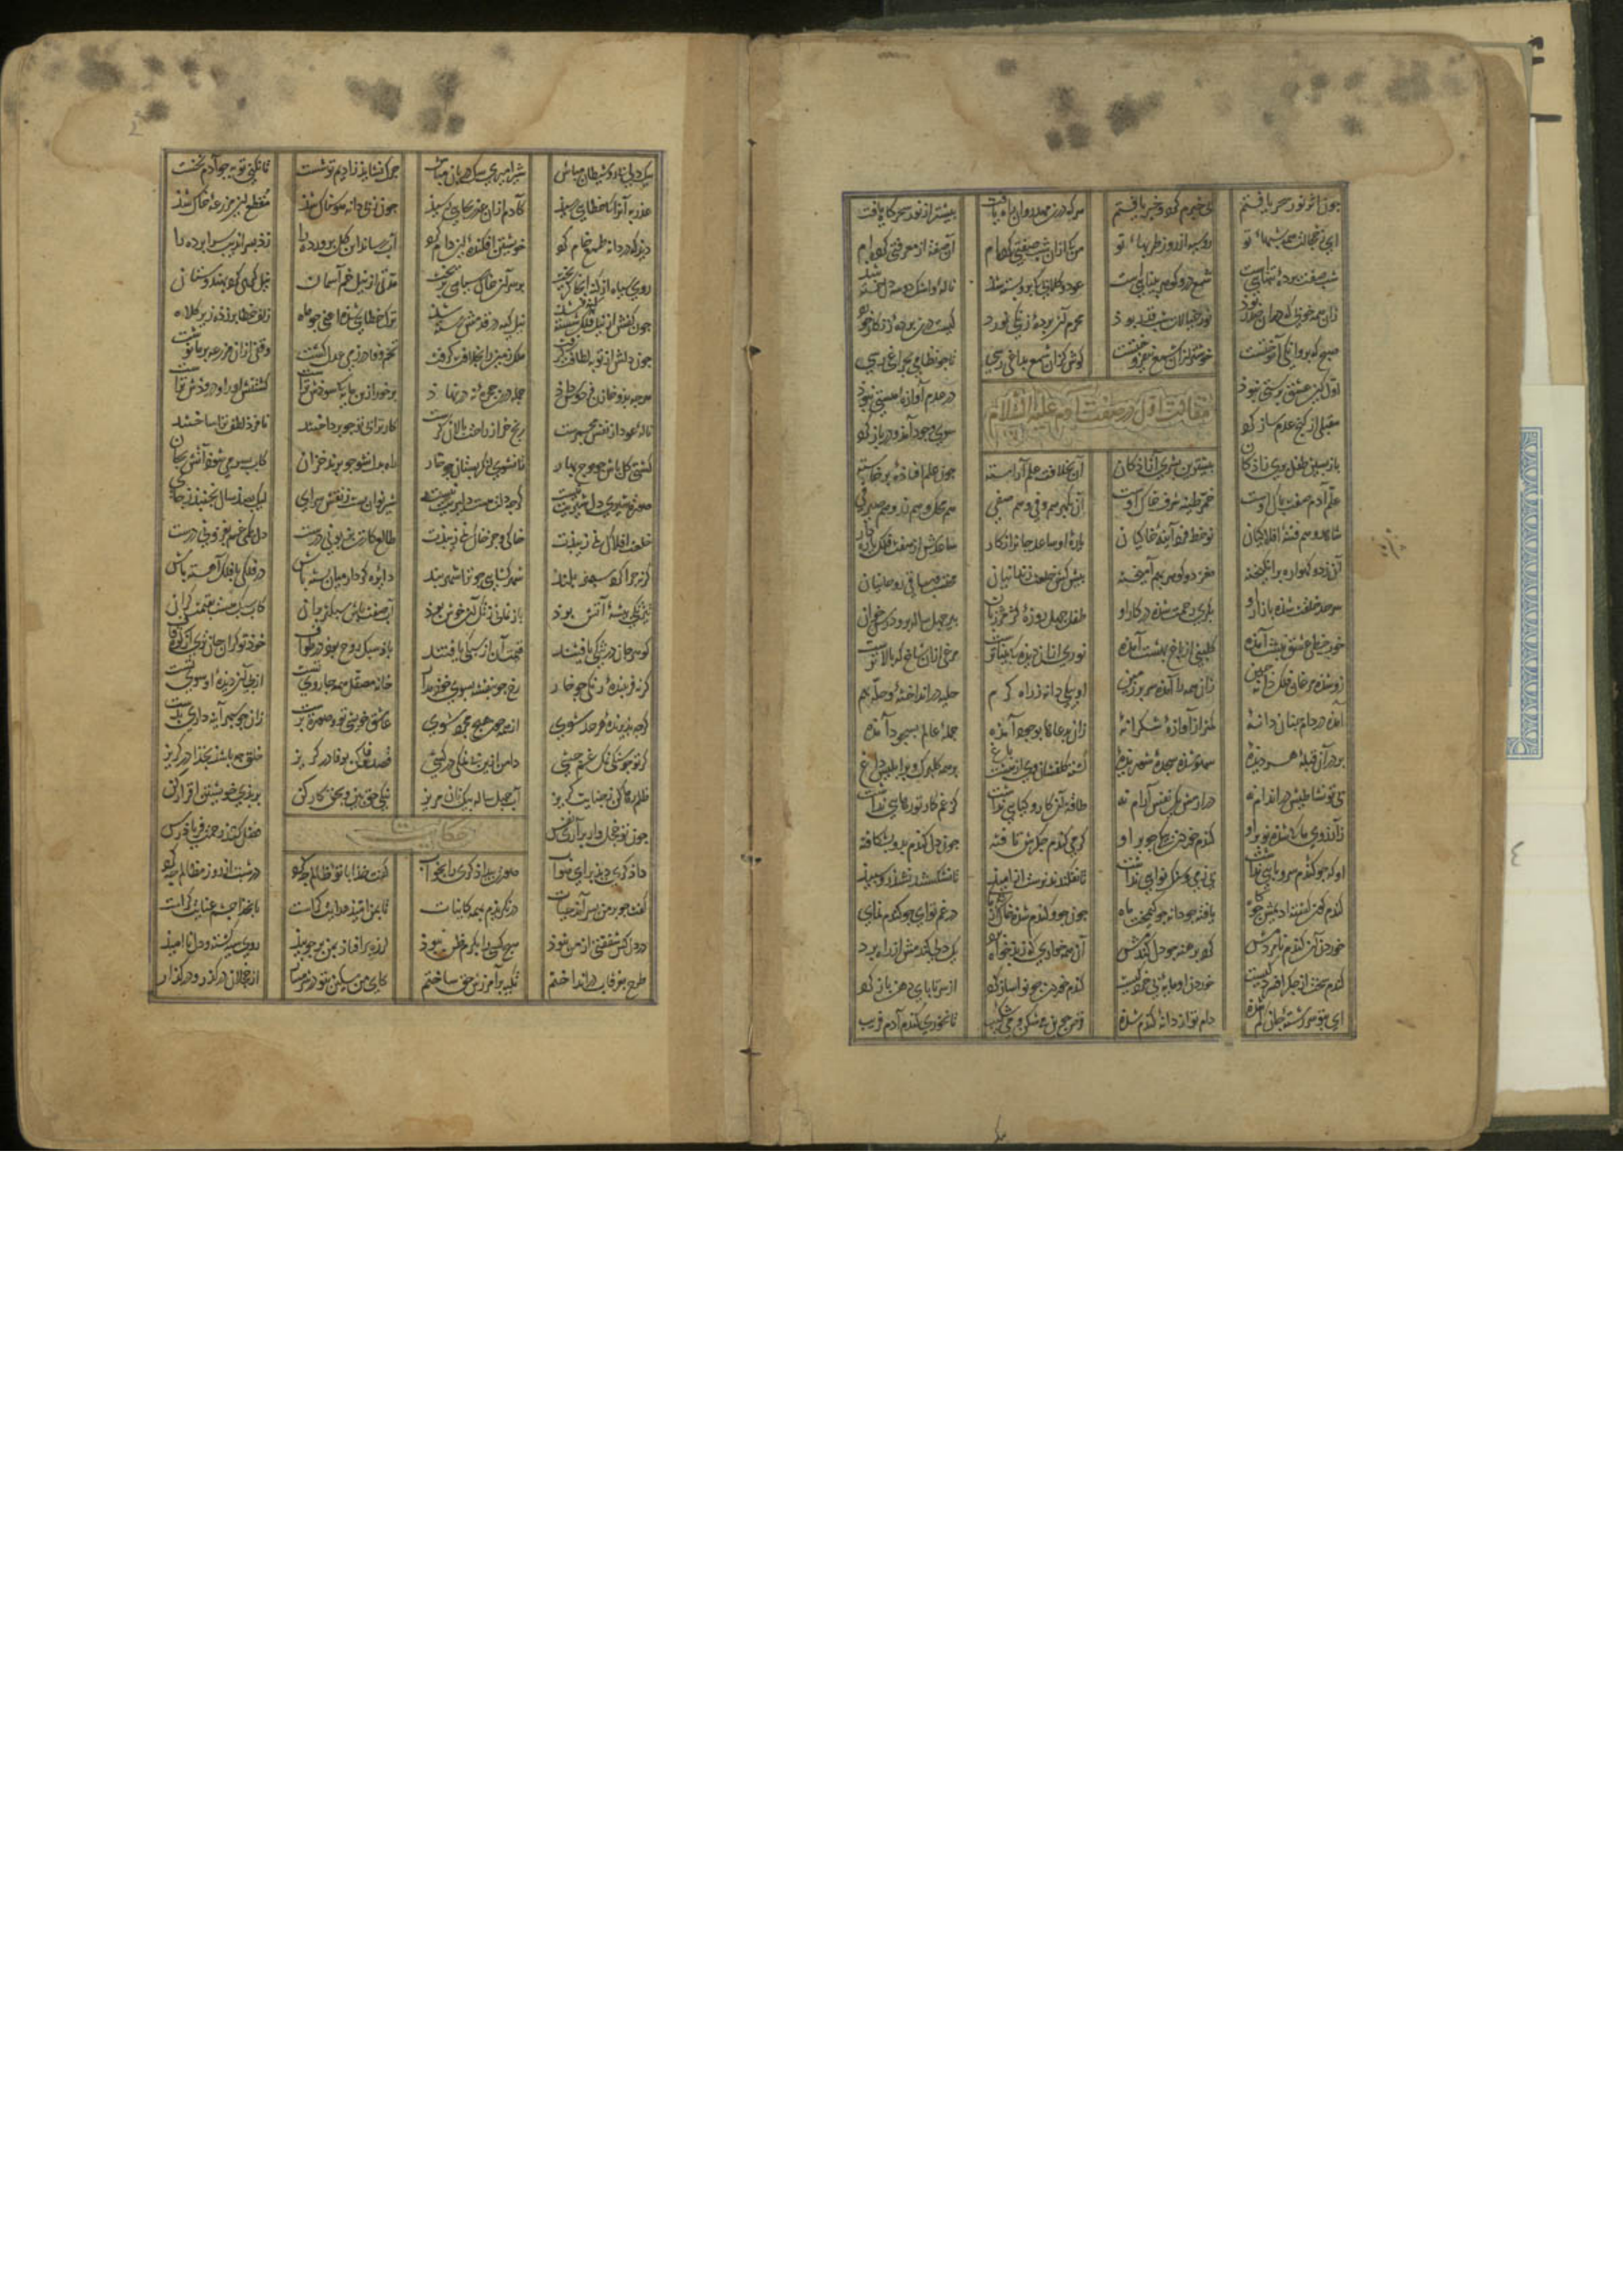 چون اثر نور سحر یافتم بی خبرم کرد و خبر یافتم هر که درین مهد روان راه یافت بیشتر از نور سحرگاه یافت
ای ز خجالت همه شبهای تو رو سیه از روز طربهای تو من که ازان شب صفتی کرده ام آن صفت از معرفتی کرده ام
شب صفت پرده تنهایی است شمع درو گوهر بینایی است عود و گلابی که برو بسته شد ناله و اشک دو سه دلخسته شد
زان همه خوبی که دران صدر بود نور خیالات شب قدر بود محرم این پرده زنگی نورد کیست درین پرده زنگار خورد
صبح که پروانگی آموختست خوشتر ازان شمع نیفروختست کوش کزان شمع بداغی رسی تا چو نظامی بچراغی رسی
مقالت اول در صفت آدم علیه السلام
اول کین عشق پرستی نبود در عدم آوازه هستی نبود
مقبلی از کنج عدم ساز کرد سوی وجود آمد و در باز کرد
بازپسین طفل پری زادگان پیشترین بشری زادگان آن بخلافت علم آراسته چون علم افتاده و برخاسته
علم آدم صفت پاک اوست خمر طینه شرف خاک اوست آن بگهر هم و هم صفی هم محک و هم زر و هم صیرفی
شاهد نو فتنه افلاکیان نو خط فرد آینه خاکیان یاره او ساعد جانرا نگار ساعدش از هفت فلک یاره دار
آن ز دو گهواره برانگیخته مغز دو گوهر بهم آمیخته پیش کش خلعت زندانیان محتسب و ساقی روحانیان
سر حد خلقت شده بازار او بکری شده در کار او طفل چهل روزه کژمژ زبان پیر چهل ساله برو درس خوان
خوب خطی عشق نبشت آمده گلبنی از باغ بهشت آمده نوری ازان دیده که بیناترست مرغی ازان شاخ که بالاترست
زو شده مرغان فلک دانه چین زان همه را آمده سر بر زمین او بیکی دانه ز راه کرم حله در انداخته و حلیه هم
آمده در دام چنان دانه کمتر از آوازه شکرانه زان بدعاها بوجود آمده جمله عالم بسجود آمده
بر در آن قبله هر دیده سهو شده سجده شوریده گشته گلفشان وی از هشت باغ بر همه گلبرگ و بر ابلیس داغ
بی تو نشاطیش در اندام نه در ارمش یک نفس آرام نه طاقت آن کار و کیایی نداشت کز غم کار تو رهایی نداشت
ز آرزوی ما که شده نو بر او گندم خوردن بیکی جو بر او گرمی گندم جگرش تافته چون دل گندم بدو بشکافته
او که چو گندم سر و پایی نداشت بی زمی و سنگ نوایی نداشت تا نفکندند نرست آن امید تا نشکستند نشد رو سپید
گندم گون گشته ادیمش چو کاه یافته جودانه چو کیمخت ماه چون جو و گندم شده خاک آزمای در غم تو ای جو گندم نمای
خوردن آن گندم نامردمش کرد برهنه چو دل گندمش آن همه خواری که ز بدخواه برد یک دلی گندمش از راه برد
گندم سخت از جگر افسردگیست خردی او مایه بی خردگیست گندم خوردن چو نوا ساز کرد از سر تا پای دهن باز کرد
ای بتو سر رشته جان گم شده دام تو از دانه گندم شده قرص جوین می شکن و می شکیب تا نخوری گندم آدم فریب
یک دلی شیطان مباش شیر امیری سگ دربان مباش چرک نشاید ز ادیم تو شست تا نکنی توبه چو آدم نخست
عذر به آنرا که خطایی رسید کادم ازان عذر بجایی رسید چون ز پی دانه هوسناک شد مقطع این مزرعه خاک شد
دید که در دانه طمع خام کرد خویشتن افکنده این دام کرد آب رساند این گل پرورده را زد بسراندیب سراپرده را
روی سیاه از گنه آنجا گریخت بر سر آن خاک سیاهی بریخت مدتی از نیل خم آسمان نیل گری کرد بهندوستان
چون کفش از نیل فلک شسته شد نیل گیه در قدمش رسته شد ترک خطایی شده یعنی چو ماه زلف خطا بر زده زیر کلاه
چون دلش از توبه لطافت گرفت ملک زمین را بخلافت گرفت تخم وفا در زمی عدل کشت وقفی ازان مزرعه بر ما نوشت
هر چه بدو خازن فردوس داد جمله درین حجره نهاد برخور ازین مایه که سودش تراست کشتنش او را و درودش تراست
ناله عود از نفس مجمرست رنج خر از راحت پالان گرست کار ترا بی تو چو پرداختند نامزد لطف ترا ساختند
کشتی گل باش بموج بهار تا نشوی لنگر بستان چو خار راه بدل شو چو خزان کاب بسر می شود آتش بجان
صورت شیری دل شیریت نیست گرچه دلت هست دلیریت نیست شیر توان بست ز نقش سرای لیک بصد سال نجنبد ز جای
خلعت افلاک نمی زیبدت خاکی و جز خاک نمی زیبدت طالع کارت بزبونی درست دل بکمی غم بفزونی درست
گرنه چرا کرد سپهر بلند شهر گشایی چو ترا شهربند دایره کردار میان بسته باش در فلکی با فلک آهسته باش
تیز تکی پیشه آتش بود باز نمانی ز تک آن خوش بود آب صفت باش سبکتر بران کاب سبک هست بقیمت گران
گوهر جان در سبکی یافتند قیمت آن از سبکی یافتند باد سبک روح بود در طواف خود تو گران جان تری از کوه قاف
گرنه فریبنده رنگی چو خار رخ چو بنفشه بسوی خود مدار خانه مصقل همه جا روی تست از پی آن دیده او سوی تست
گرچه پذیرنده هر حد شوی از همه چون هیچ مجرد شوی عاشق خویشی تو و صورت پرست زان چو سپهر آینه داری بدست
گر تو جو سنگی نمک غم چشی دامن ازین بی نمکی درکشی در گریز خلق چه باشد بخدا در گریز
ظلم رها کن بعنایت گریز آب چهل ساله بیک نان مریز نیکی حق بین و بحق کار کن بر بدی خویشتن اقرار کن
چون تو خجل وار برآری نفس فضل کند رحمت فریاد رس
حکایت
داد گری دید برای صواب صورت بیداد گری را بخواب گفت خدا با تو ظالم چه کرد در شبت از روز مظالم چه کرد
گفت چو بر من بسر آمد حیات در نگریدم بهمه کاینات تا بمن امید هدایت کراست یا بخدا چشم عنایت کراست
در دل کس شفقتی از من نبود هیچ کسی را بکرم ظن نبود لرزه در افتاد بمن بر چو بید روی سیه گشته و دل ناامید
طرح بغرقاب در انداختم تکیه بر آمرزش حق ساختم کای من مسکین بتو در شرمسار از خجلان در گذر و در گذار